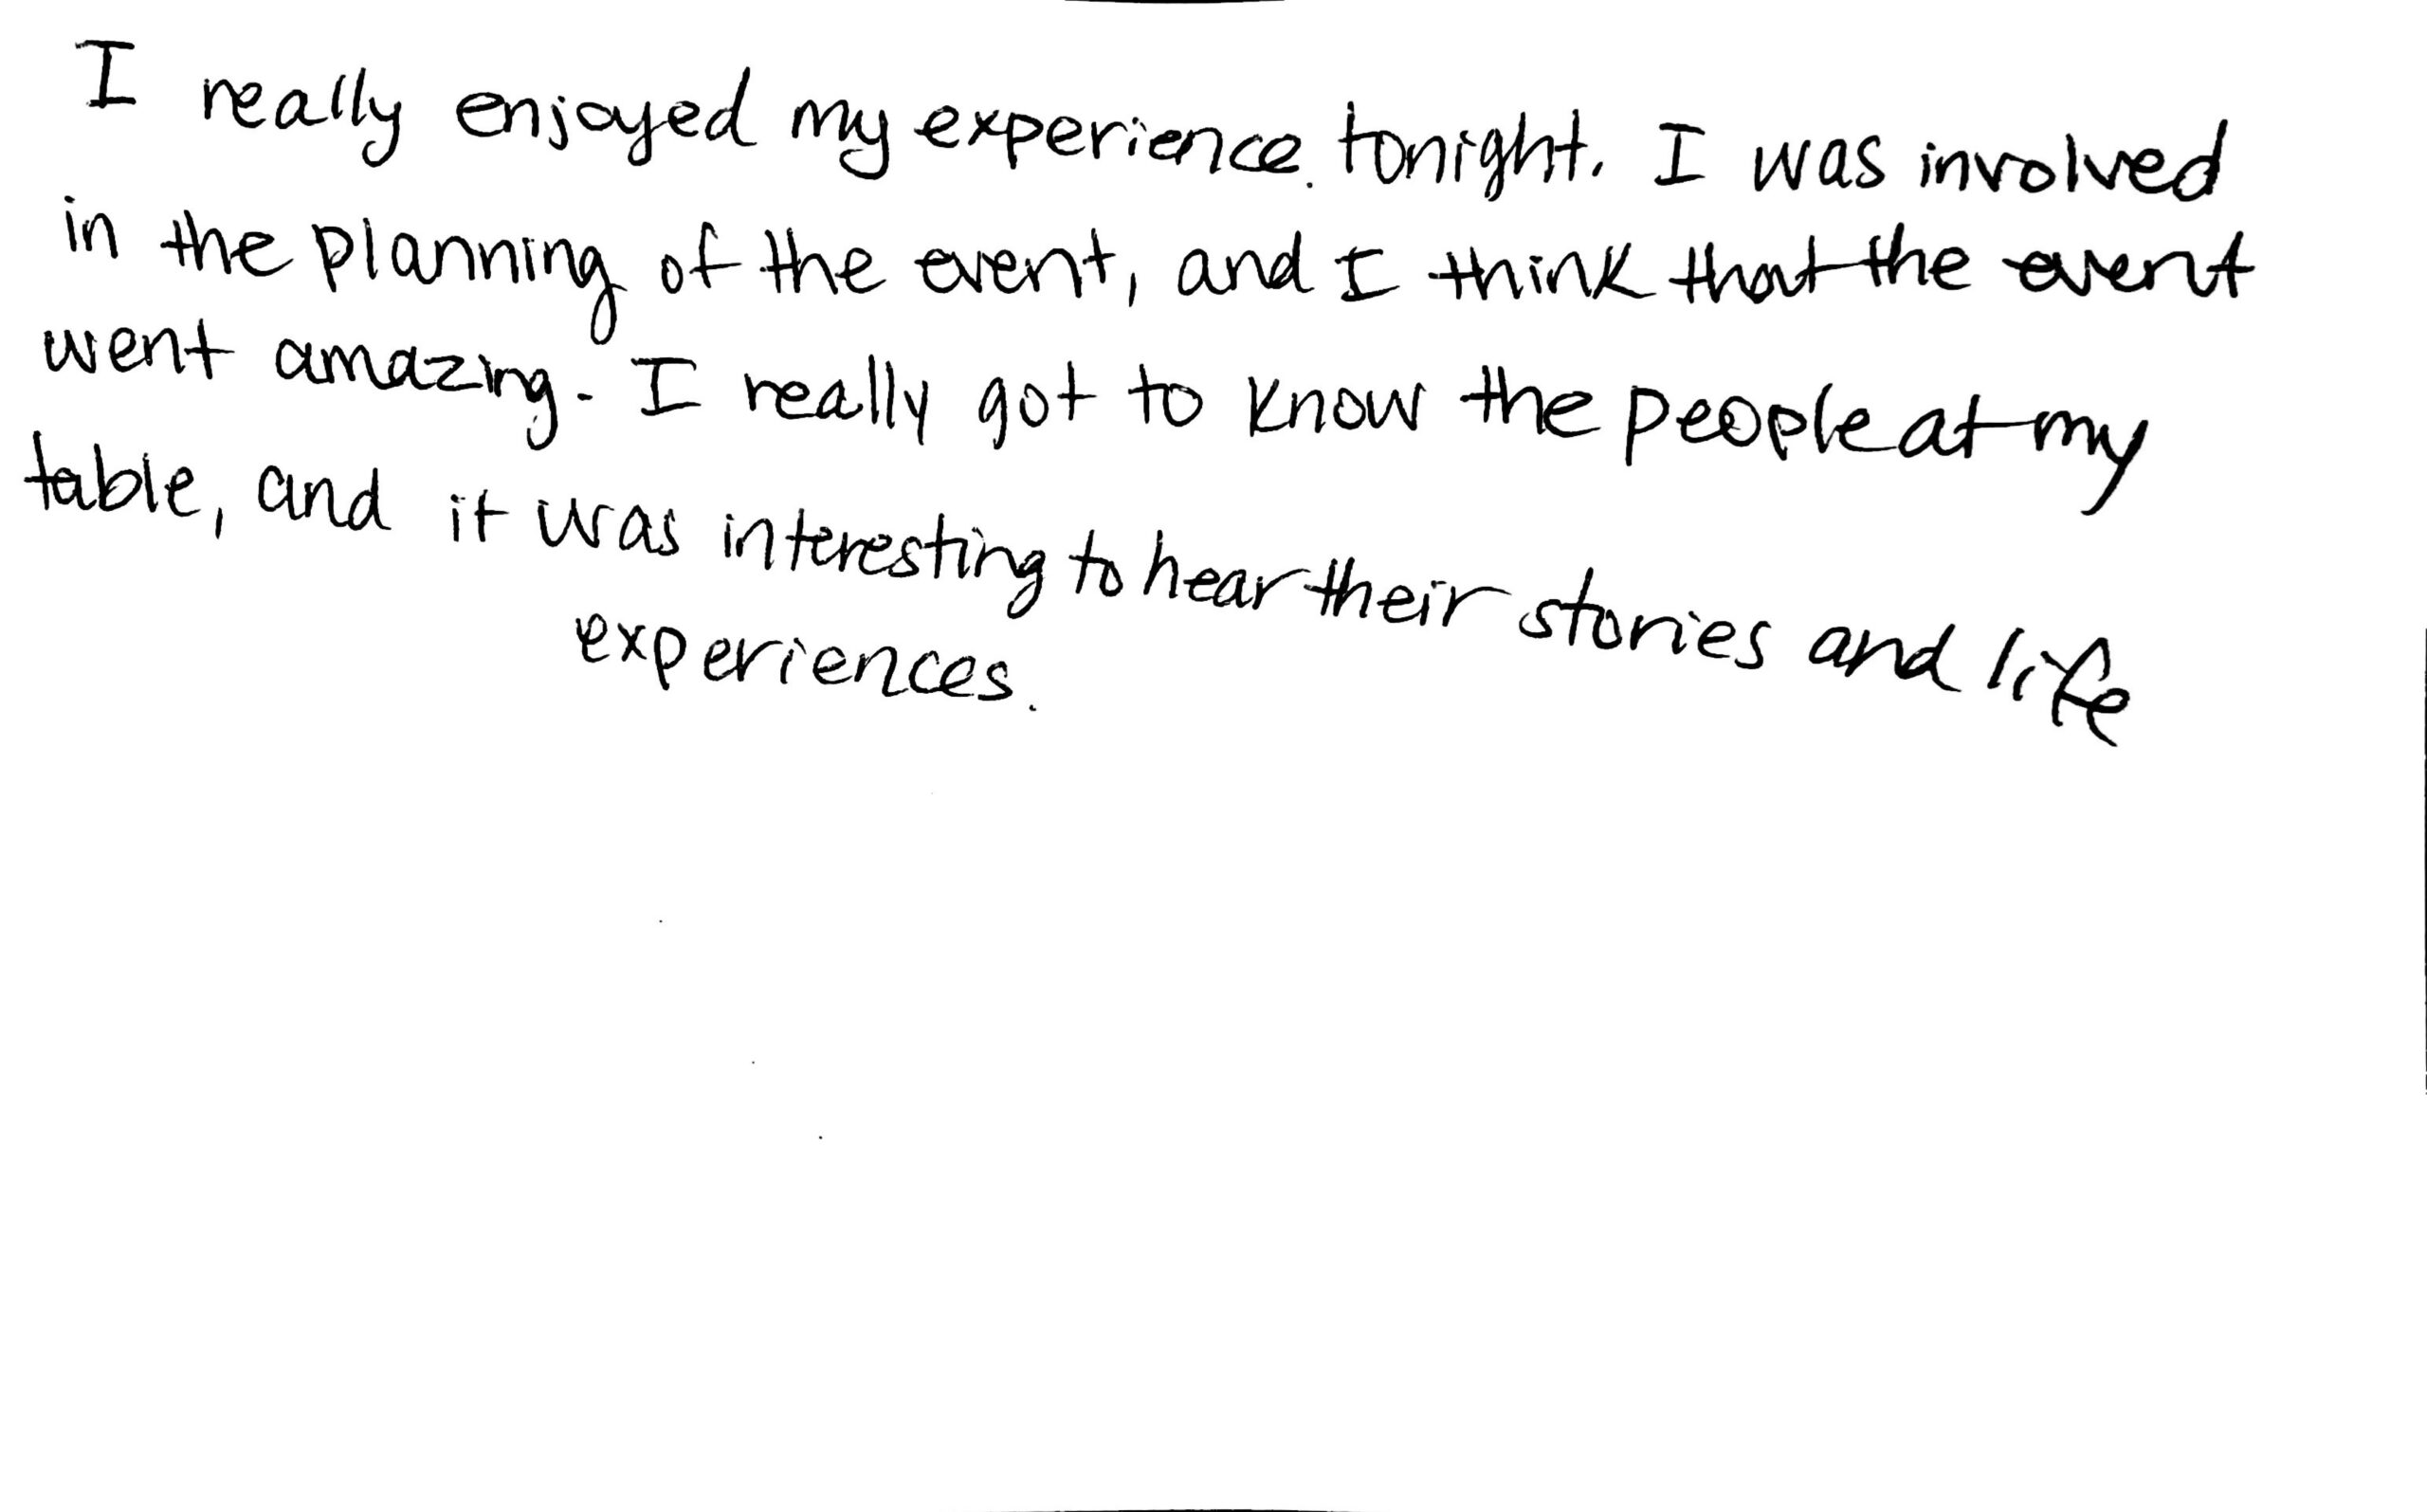 I really enjoyed my experience tonight. I was involved
in the planning of the event, and I think that the event
went amazing. I really got to know the people at my
table, and it was interesting to hear their stories and life
experiences.